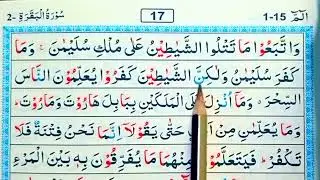 سُوْرَةُ الْبَقَرَةِ -2
17
الٓمّٓ 1-15
وَاتَّبَعُوْا مَا تَتْلُوا الشَّيٰطِيْنُ عَلٰى مُلْكِ سُلَيْمٰنَ ۚ وَمَا
كَفَرَ سُلَيْمٰنُ وَلٰكِنَّ الشَّيٰطِيْنَ كَفَرُوْا يُعَلِّمُوْنَ النَّاسَ
السِّحْرَ ۗ وَمَآ اُنْزِلَ عَلَى الْمَلَكَيْنِ بِبَابِلَ هَارُوْتَ وَمَارُوْتَ ۗ
وَمَا يُعَلِّمٰنِ مِنْ اَحَدٍ حَتّٰى يَقُوْلَآ اِنَّمَا نَحْنُ فِتْنَةٌ فَلَا
تَكْفُرْ ۗ فَيَتَعَلَّمُوْنَ مِنْهُمَا مَا يُفَرِّقُوْنَ بِهٖ بَيْنَ الْمَرْءِ